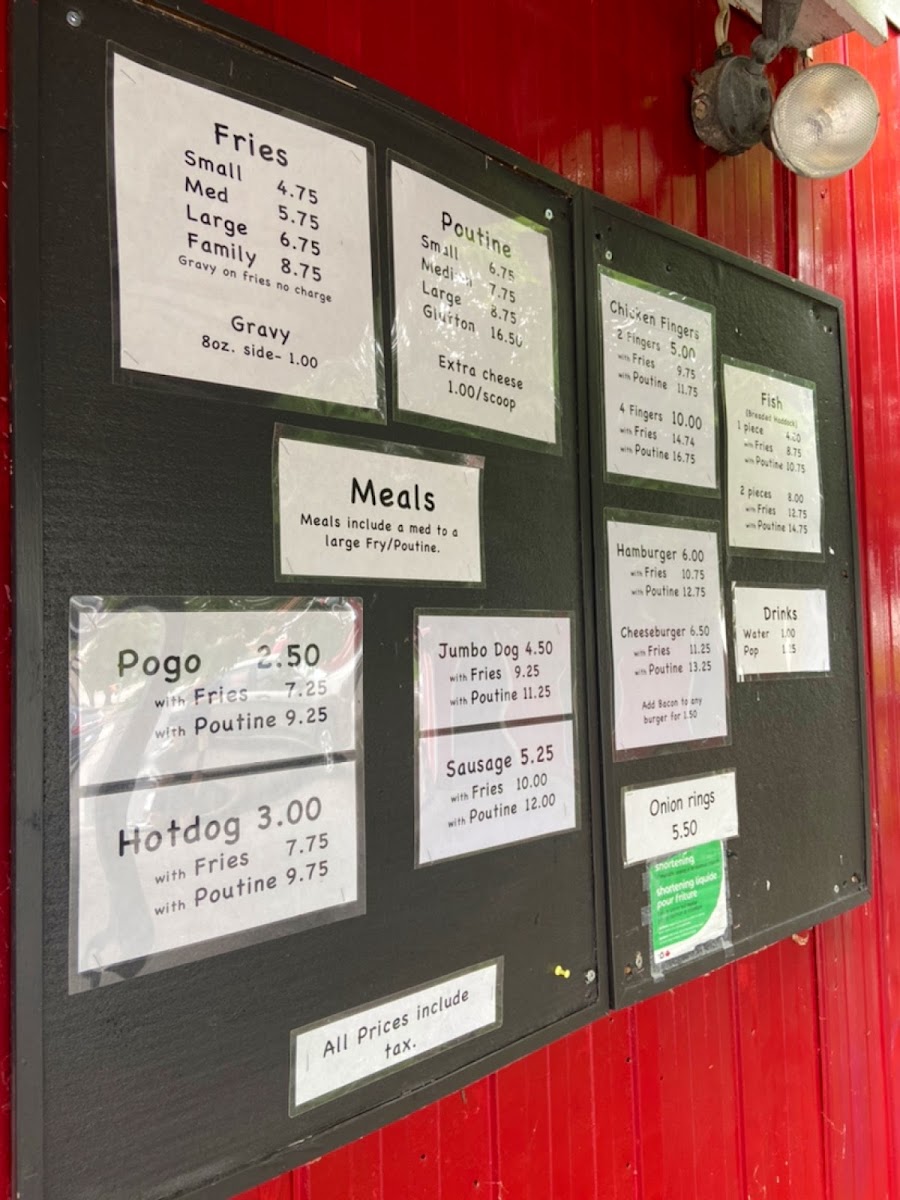 Fries
Small 4.75
Med 5.75
Large 6.75
Family 8.75
Gravy on fries no charge
Gravy
8oz. side- 1.00
Poutine
Small 6.75
Medium 7.75
Large 8.75
Glutton 16.50
Extra cheese
1.00/scoop
Meals
Meals include a med to a
large Fry/Poutine.
Pogo 2.50
with Fries 7.25
with Poutine 9.25
Hotdog 3.00
with Fries 7.75
with Poutine 9.75
Jumbo Dog 4.50
with Fries 9.25
with Poutine 11.25
Sausage 5.25
with Fries 10.00
with Poutine 12.00
All Prices include
tax.
Chicken Fingers
2 Fingers 5.00
with Fries 9.75
with Poutine 11.75
4 Fingers 10.00
with Fries 14.74
with Poutine 16.75
Fish
(Breaded Haddock)
1 piece
with Fries 8.75
with Poutine 10.75
2 pieces 8.00
with Fries 12.75
with Poutine 14.75
Hamburger 6.00
with Fries 10.75
with Poutine 12.75
Cheeseburger 6.50
with Fries 11.25
with Poutine 13.25
Add Bacon to any
burger for 1.50
Drinks
Water 1.00
Pop
Onion rings
5.50
shortening
shortening liquide
pour friture